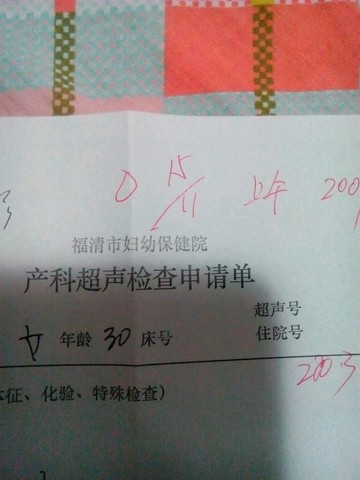 15/11 上午 200
福清市妇幼保健院
产科超声检查申请单
超声号
女 年龄 30 床号 住院号
征、化验、特殊检查)